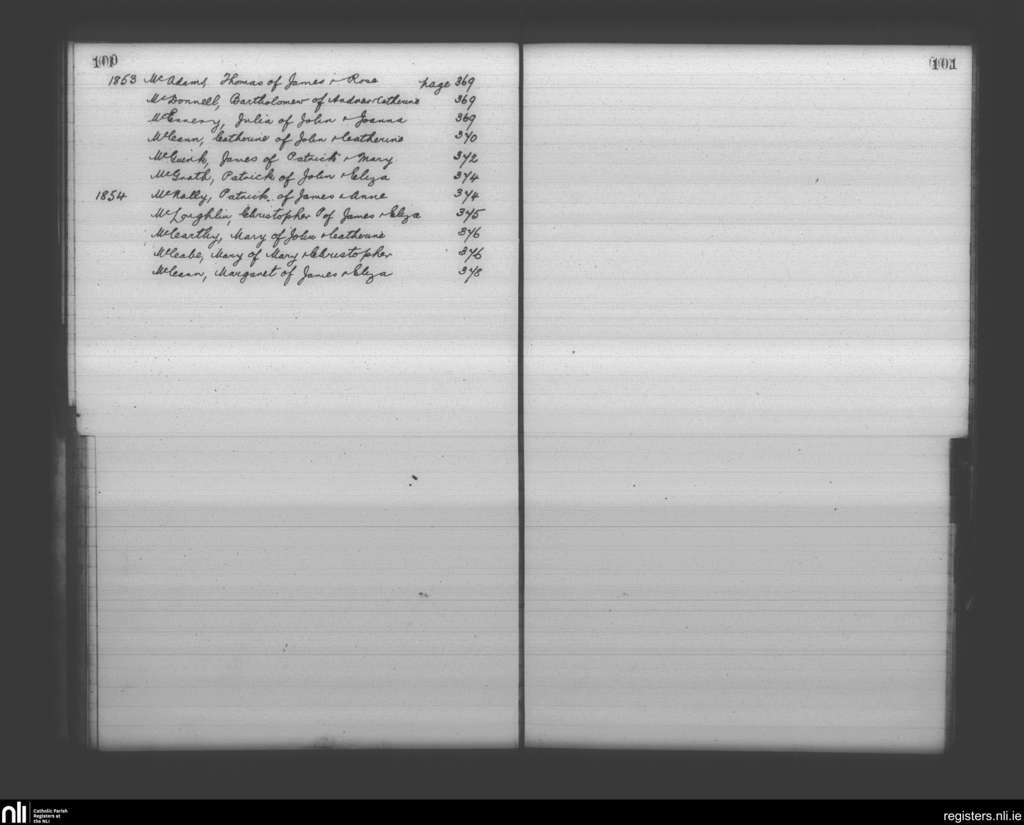 100
1853 McAdams, Thomas of James & Rose page 369
McDonnell, Bartholomew of Andrew & Catherine 369
McEnnery, Julia of John & Joanna 369
McCann, Catherine of John & Catherine 370
McGuirk, James of Patrick & Mary 372
McGrath, Patrick of John & Eliza 374
1854 McNally, Patrick of James & Anne 374
McLoughlin, Christopher P of James & Eliza 375
McCarthy, Mary of John & Catherine 376
McCabe, Mary of Mary & Christopher 376
McCann, Margaret of James & Eliza 378
101
nli
Catholic Parish
Registers at
the NLI
registers.nli.ie